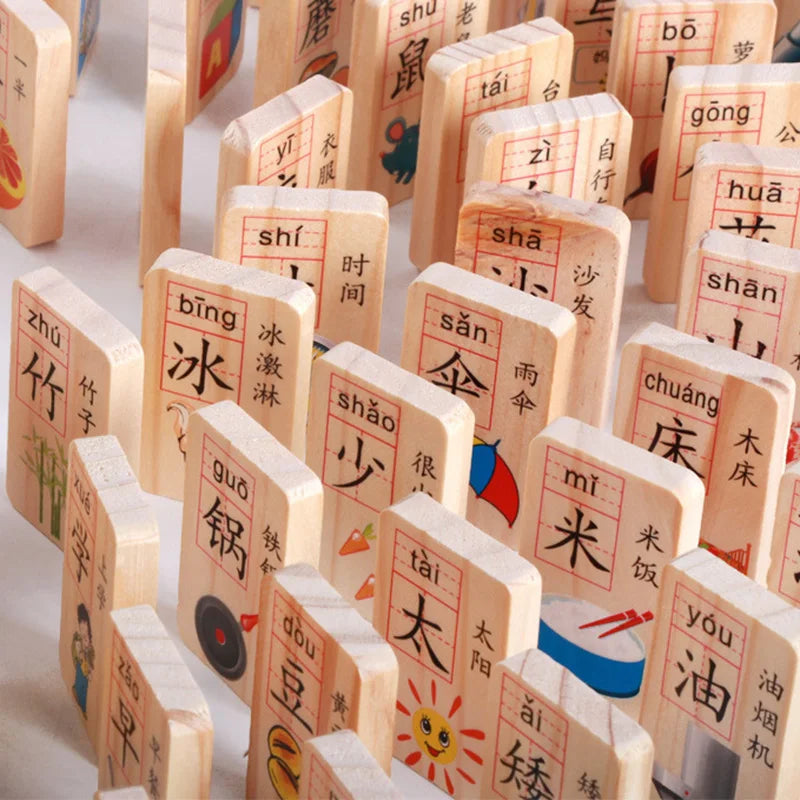 一半
磨
shǔ
鼠
老
bō
萝
tái
台
gōng
公
yī
衣服
zì
自行
huā
shí
时间
shā
沙发
shān
山
zhú
竹
竹子
bīng
冰
冰激淋
sǎn
伞
雨伞
chuáng
床
木床
shǎo
少
很少
xué
学
上学
guō
锅
铁锅
mǐ
米
米饭
tài
太
太阳
yóu
油
油烟机
dòu
豆
黄
zǎo
早
早餐
ǎi
矮
矮
A